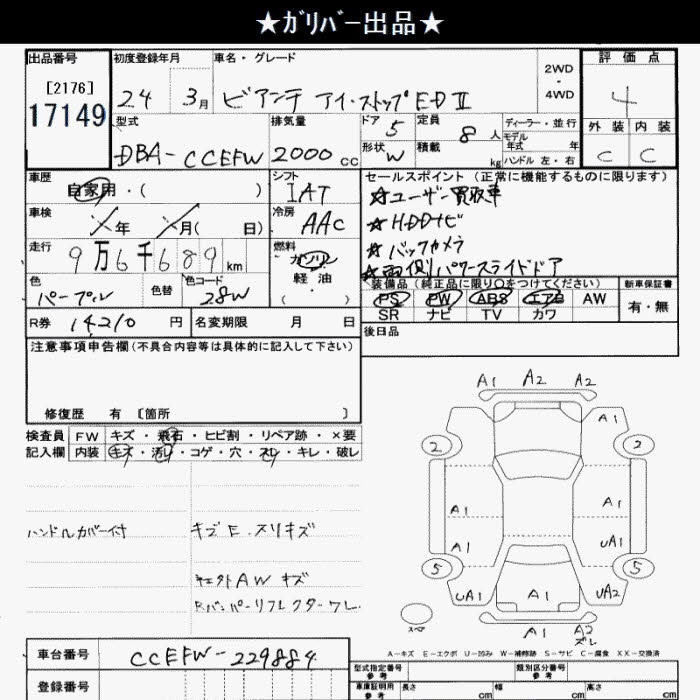 ★ｶﾞﾘﾊﾞｰ出品★
出品番号 初度登録年月 車名・グレード 評価点
[2176] 2WD・4WD 4
17149 24 3月 ビアンテ アイ・ストップED II
型式 排気量 ドア 5 定員 8人 ディーラー・並行 外装 内装
モデル年式 年
DBA-CCEFW 2000cc 形状 W 積載 kg ハンドル 左・右 C C
車歴 自家用・( ) シフト IAT セールスポイント (正常に機能するものに限ります)
☆ユーザー買取車
車検 年 月( 日) 冷房 AAC ☆HDDナビ
☆バックカメラ
走行 9万6千689km 燃料 ガソリン ☆両側パワースライドドア
軽油
( )
色 パープル 色替 色コード 28W 装備品(純正品に限り○をつけてください) 新車保証書
PS PW ABS エアB AW 有・無
SR ナビ TV カワ
R券 14210円 名変期限 月 日 後日品
注意事項申告欄(不具合内容等は具体的に記入して下さい)
修復歴 有 [箇所 ]
検査員 FW キズ・飛石・ヒビ割・リペア跡・×要
記入欄 内装 キズ・汚レ・コゲ・穴・スレ・キレ・破レ
ハンドルカバー付 キズE.スリキズ
社外AW キズ
Rバンパーリフレクターワレ
A1 A2 A2
A1
2 2
A1 A1
A1 UA1
5 5
UA1 A1 UA2
スペア A1 A2
ズレ
A-キズ E-エクボ U-凹み W-補修跡 S-サビ C-腐食 XX-交換済
車台番号 CCEFW-229884 型式指定番号 参考 類別区分番号 参考
登録番号 車庫証明用 参考 長さ cm 幅 cm 高さ cm